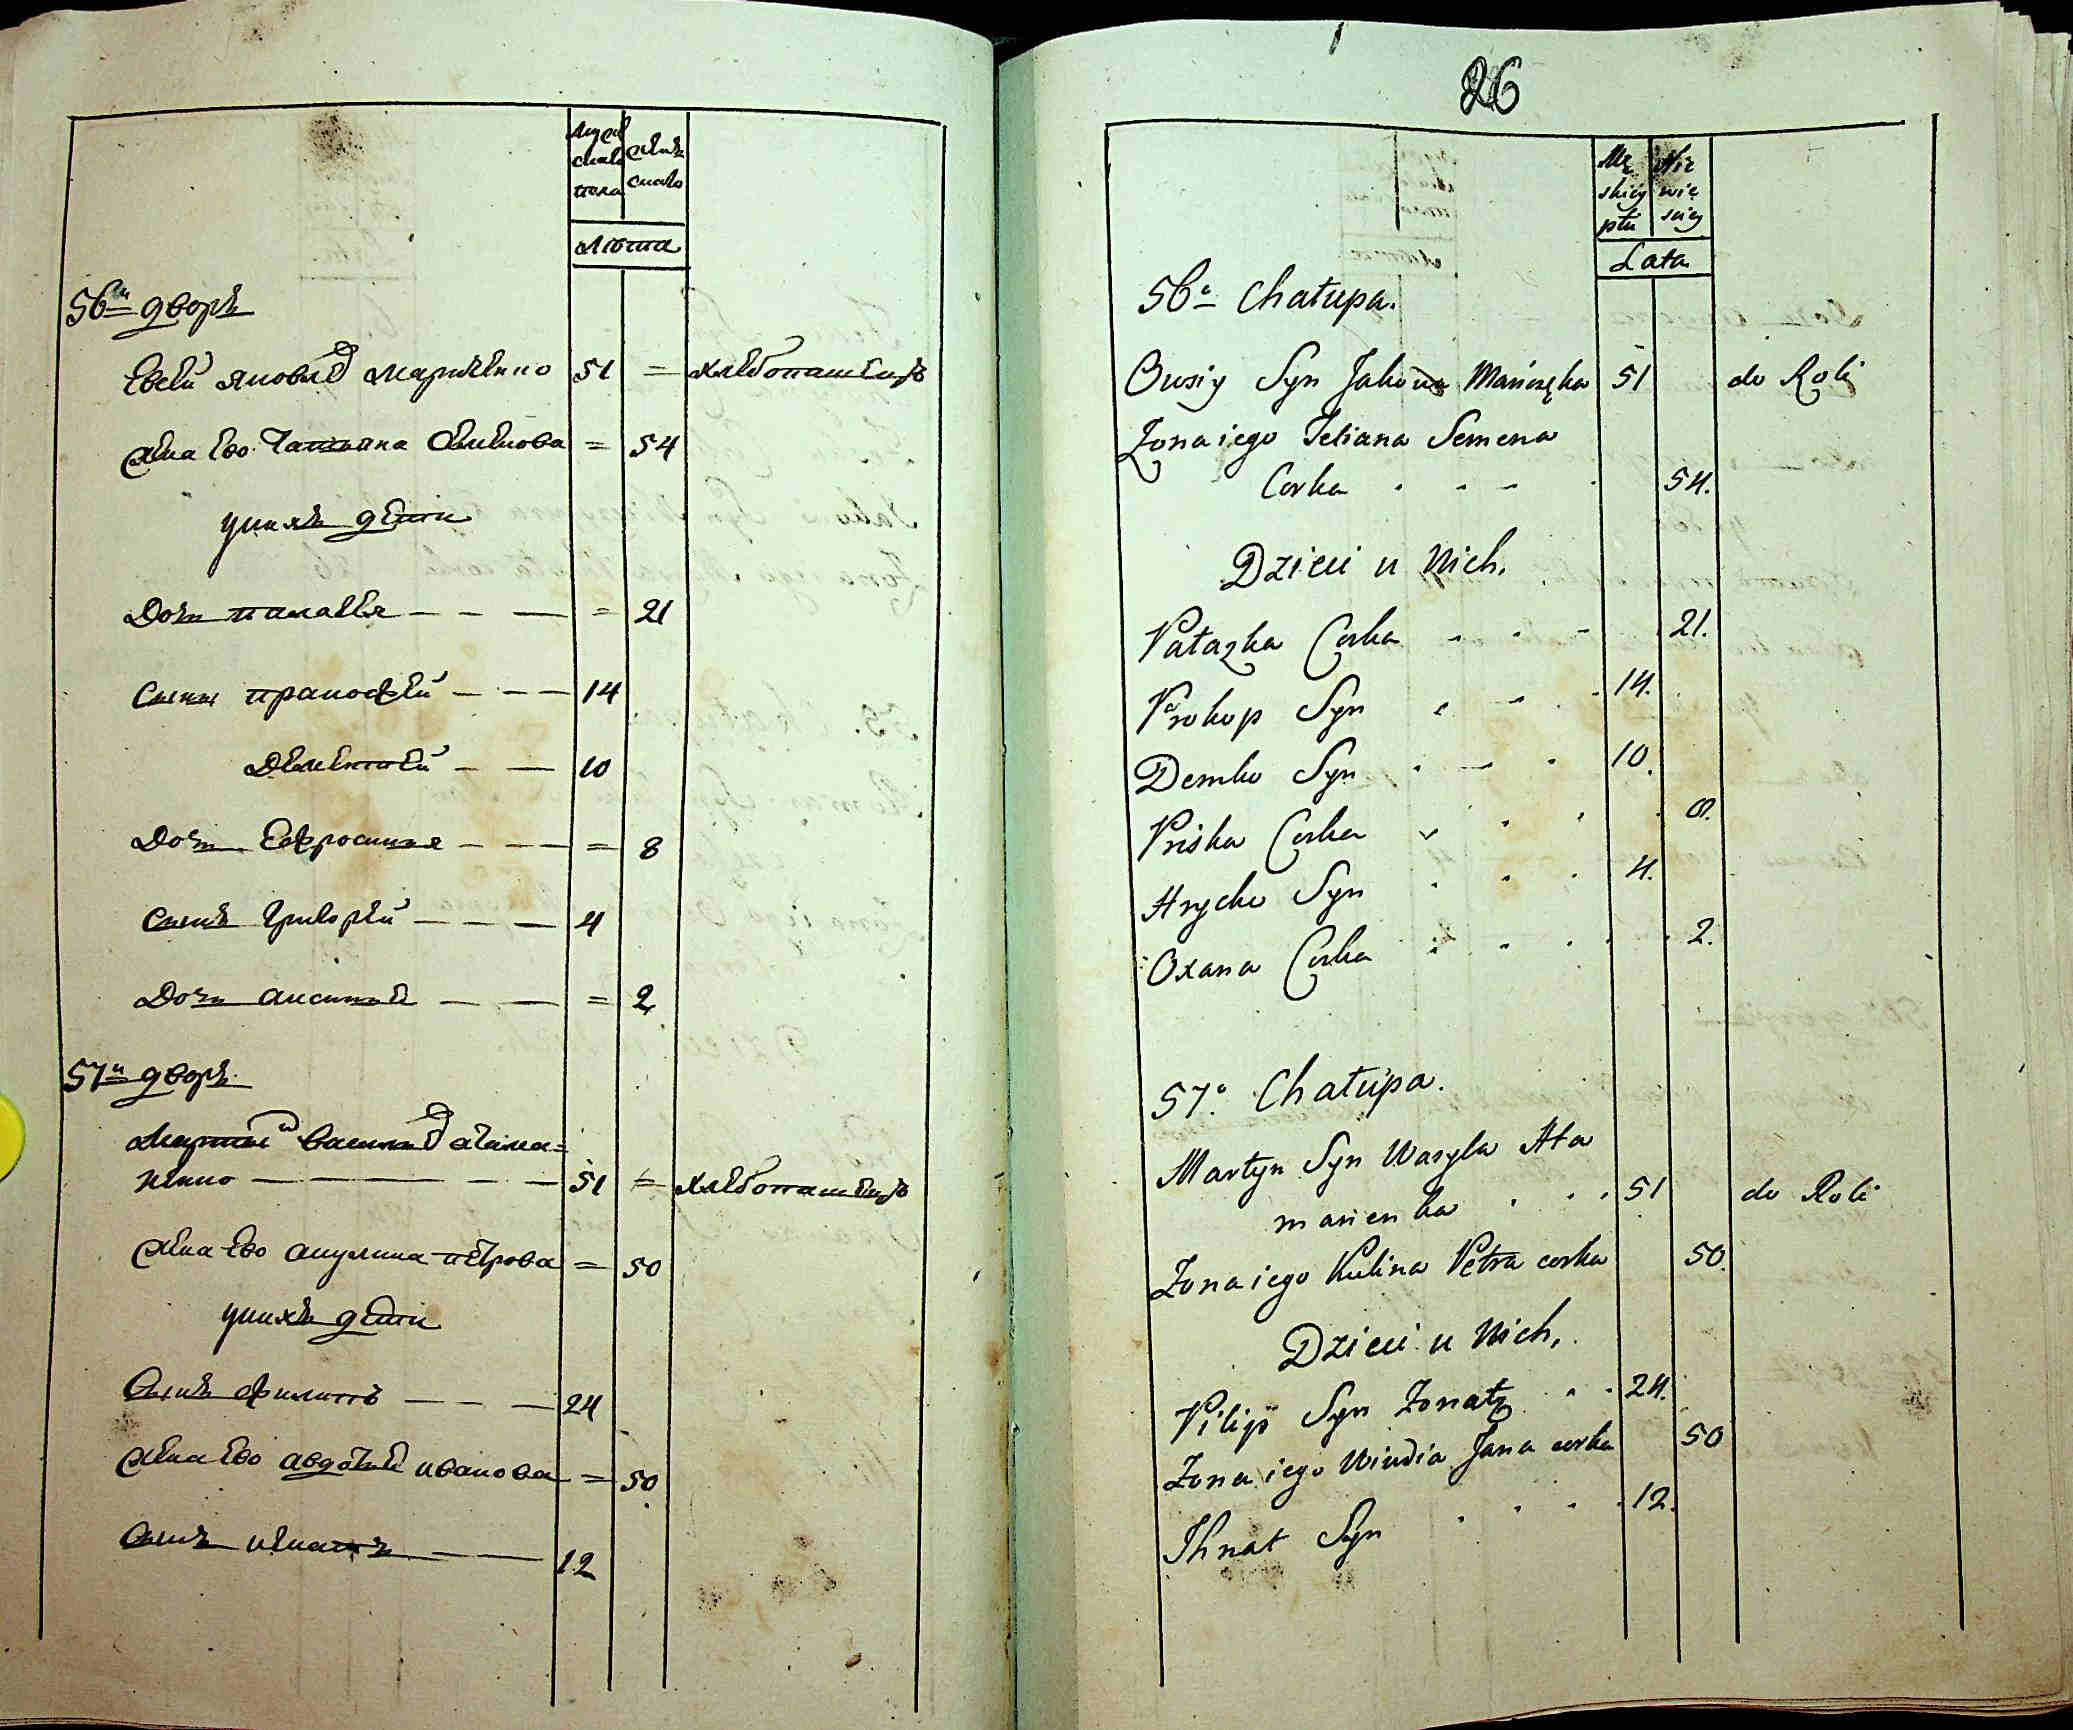 Мужеска пола
Женска
Лѣта
56й дворъ
Евсей Яковлев Марченко 51 = хлебопашецъ
Жена Ево Татьяна Семенова = 54
у нихъ дети
Дочь Палажея = 21
Сыны Пракофей 14
Дементей 10
Дочь Ефросинья = 8
Сынъ Григорей 4
Дочь Аксинья = 2
57й дворъ
Мартин Васильев Атама=
ненко 51 = хлебопашецъ
Жена Ево Акулина Петрова = 50
у нихъ дети
Сынъ Филипъ 24
Жена Ево Авдотья Иванова = 50
Сынъ Игнатъ 12
26
Mę
skiey
płci
Nie
wie
sciey
Lata
56a Chałupa.
Ousiy Syn Jakowa Marczęka 51 do Roli
Zona iego Tetiana Semena
Corka 54.
Dzieci u Nich,
Pałazka Corka 21.
Prokop Syn 14.
Demko Syn 10.
Priska Corka 8.
Hrycko Syn 4.
Oxana Corka 2.
57a Chałupa.
Martyn Syn Wasyla Ata
manenka 51 do Roli
Zona iego Kulina Petra corka 50.
Dzieci u Nich,
Pilip Syn Zonaty 24.
Zona iego Jana corka 50
Ihnat Syn 12.